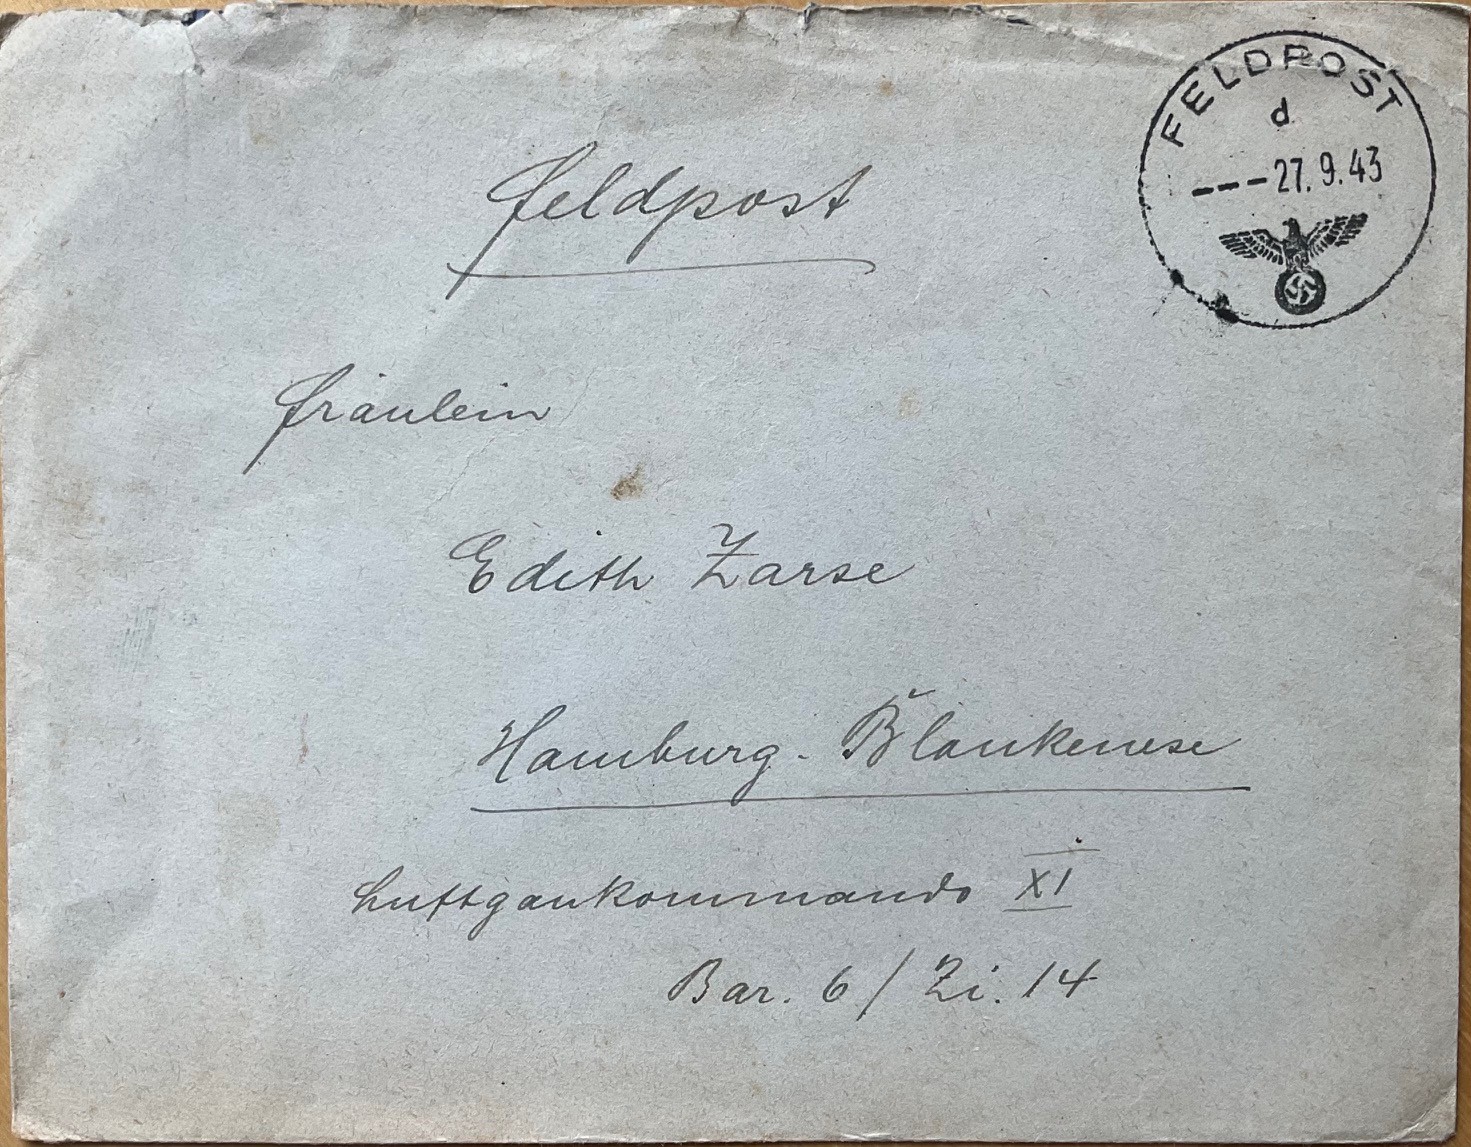 FELDPOST
d
---27.9.43
Feldpost
Fräulein
Edith Zarse
Hamburg-Blankenese
Luftgaukommando XI
Bar. 6 / Zi. 14